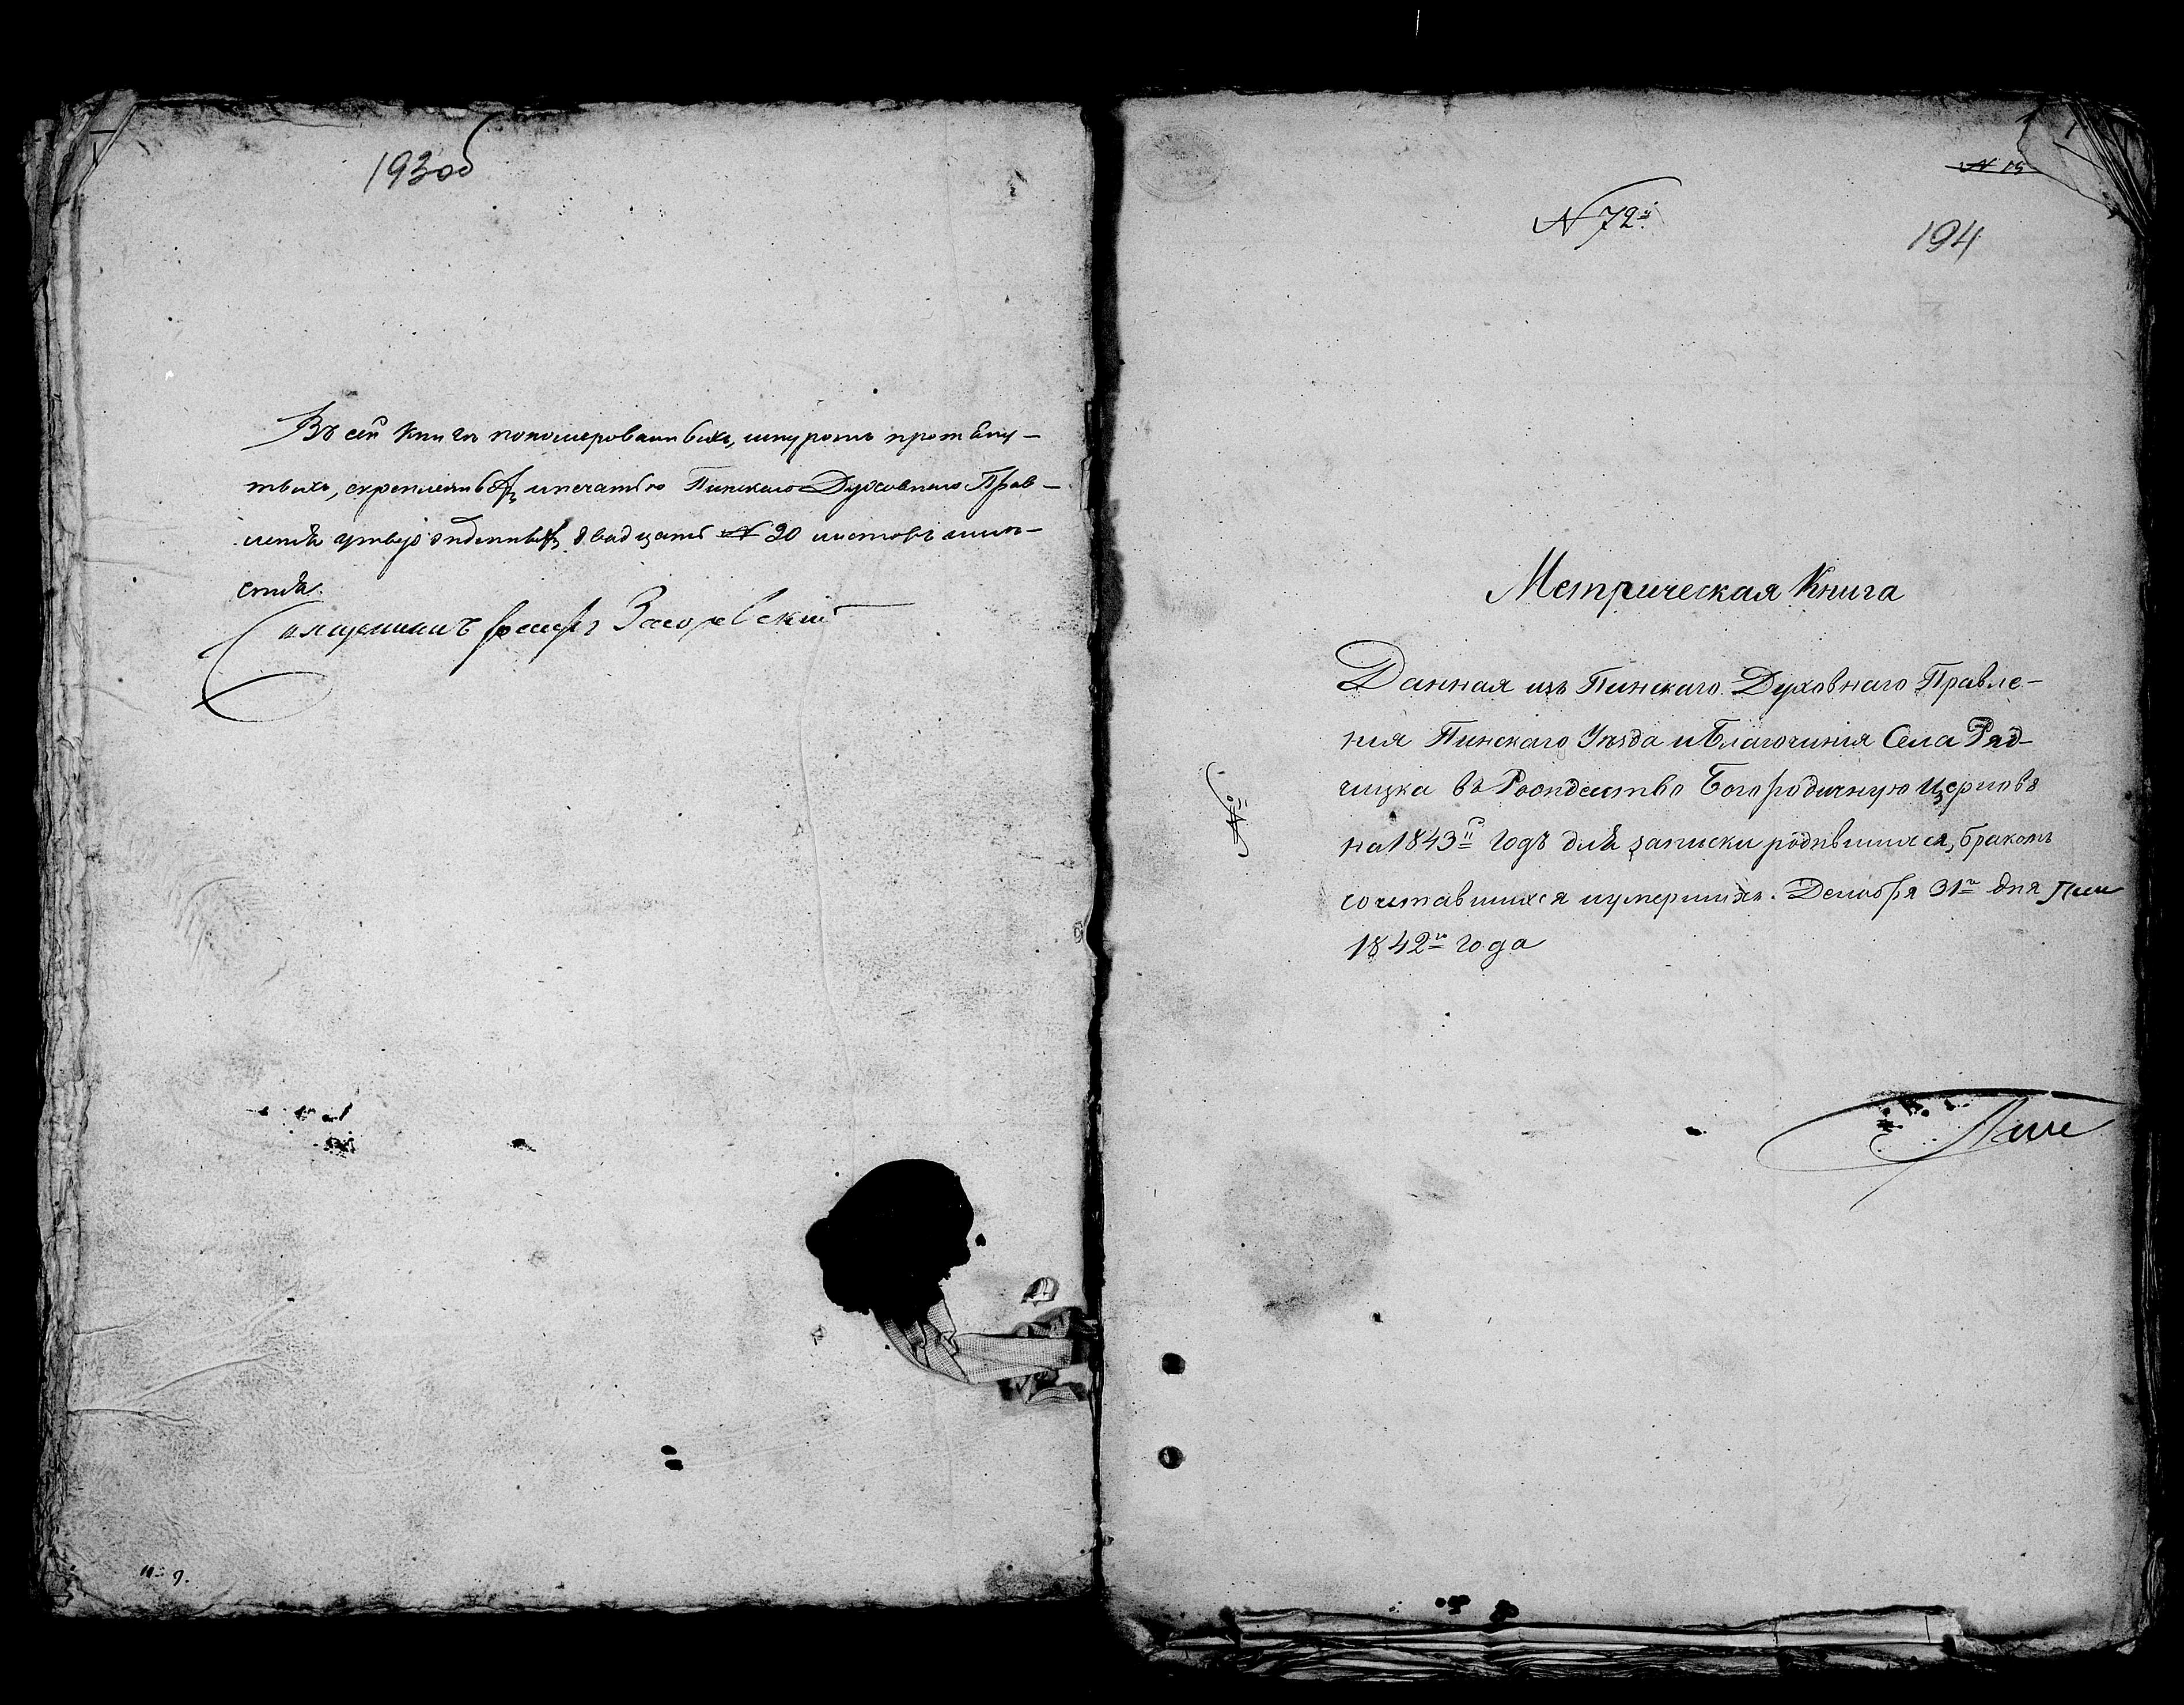 193 об
Въ сей Книгѣ пономерованныхъ, шнуромъ протяну-
тыхъ, скрепленныхъ и печатью Пинского Духовного Прав-
ленія утвержденныхъ двадцать № 20 листовъ
Священникъ Іосифъ
№ 15
№ 72й
194
Метрическая Книга
Данная изъ Пинскаго Духовнаго Правле-
нія Пинскаго Уѣзда и Благочинія Села Ряд-
чицка въ Рождество Богородичную Церковь
на 1843й годъ для записки родившихся, бракомъ
сочетавшихся и умершихъ. Декабря 31го дня
1842го года
№